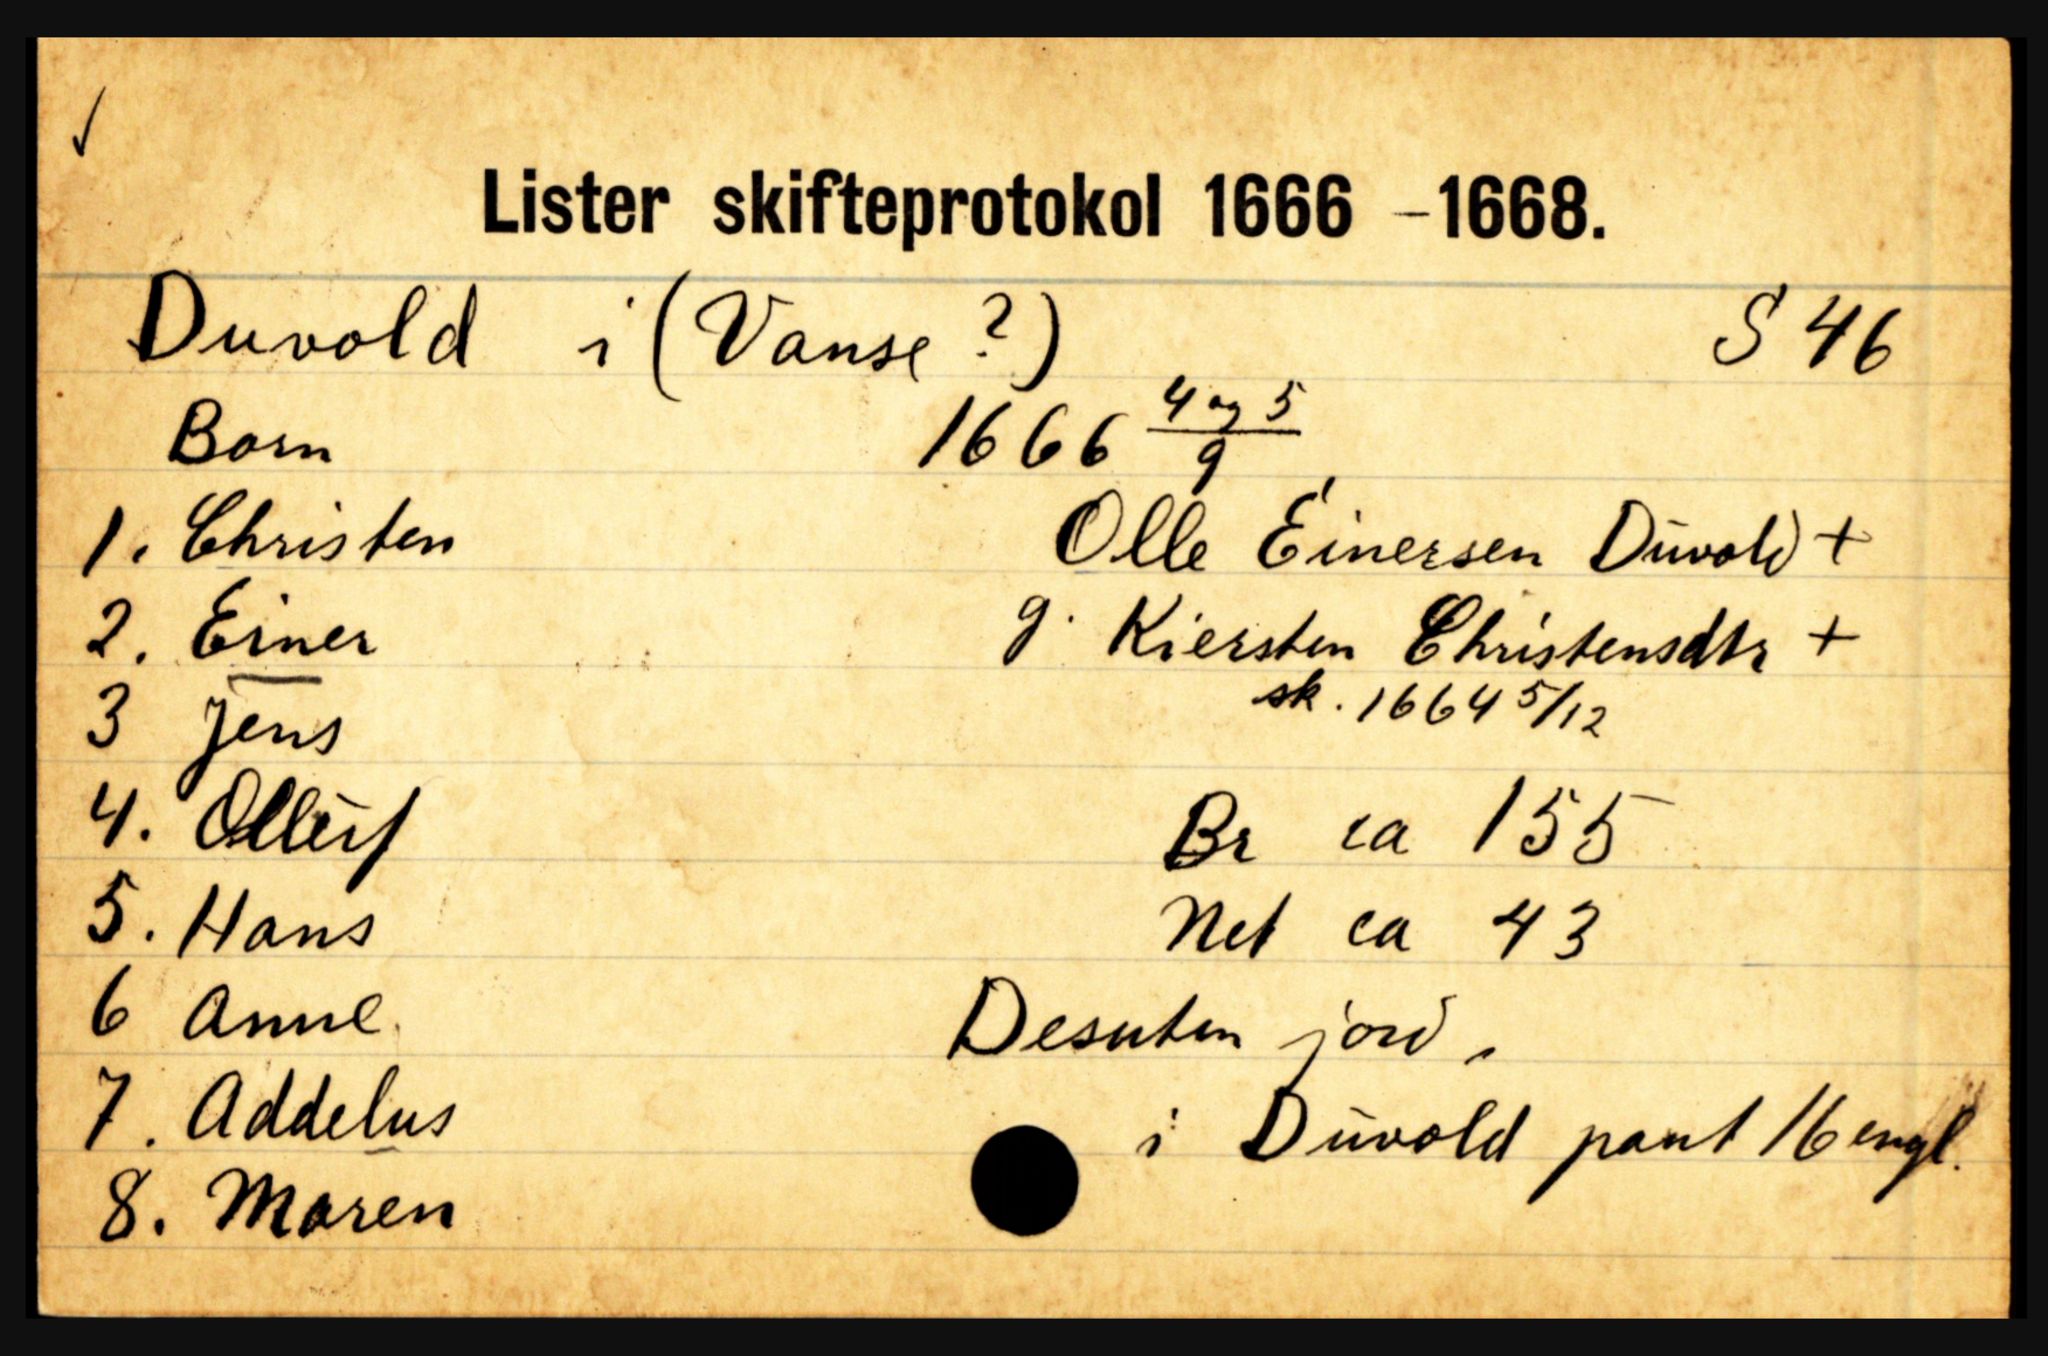 ✓
Lister skifteprotokol 1666 – 1668.
Duvold i (Vanse ?) S 46
Born 1666 4 og 5/9
1. Christen Olle Einersen Dŭvold +
2. Einer g. Kiersten Christensdtr +
sk. 1664 5/12
3 Jens
4. Ollŭf Br ca 155
5. Hans Net ca 43
6 Anne Desuten jord,
7. Addelus i Dŭvold pant 16 engl.
8. Maren